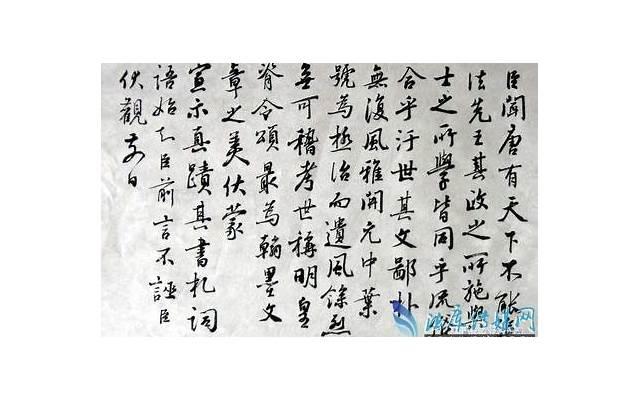 臣聞唐有天下不能
法先王其政之所施與
士之所學皆同乎流
合乎汙世其文鄙朴
無復風雅開元中葉
號為極治而遺風餘烈
無可稽考世稱明皇
脊令頌最為翰墨文
章之美伏蒙
宣示真蹟其書札詞
語始知臣前言不誣臣
伏觀